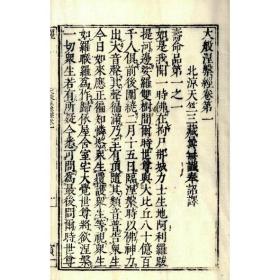 大般涅槃經卷第一
北涼天竺三藏曇無讖奉 詔譯
壽命品第一之一
如是我聞一時佛在拘尸那城力士生地阿利羅跋
提河邊娑羅雙樹間爾時世尊與大比丘八十億百
千人俱前後圍繞二月十五日臨涅槃時以佛神力
出大音聲其聲遍滿乃至有頂隨其類音普告眾生
今日如來應正遍知憐愍眾生覆護眾生等視眾生
如羅睺羅為作歸依屋舍室宅大覺世尊將欲涅槃
一切眾生若有所疑今悉可問為最後問爾時世尊